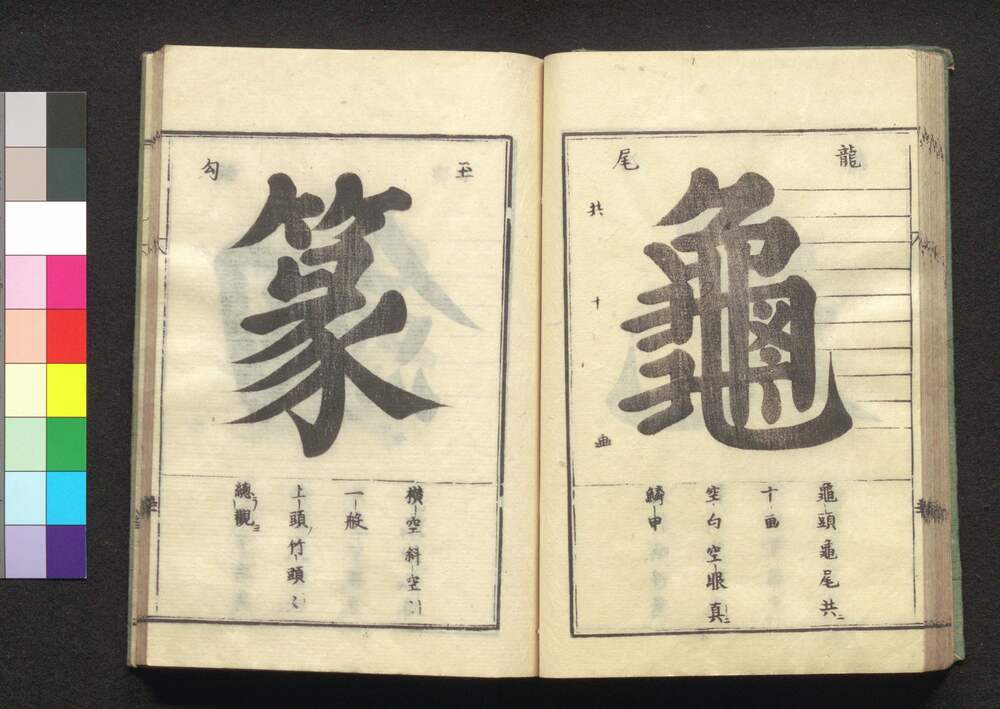 龍尾
龜
共十画
龜頭龜尾共ニ
十画
空白空眼真ニ
鱗甲
玉勾
篆
橫空斜空
一般
上頭竹頭
總觀